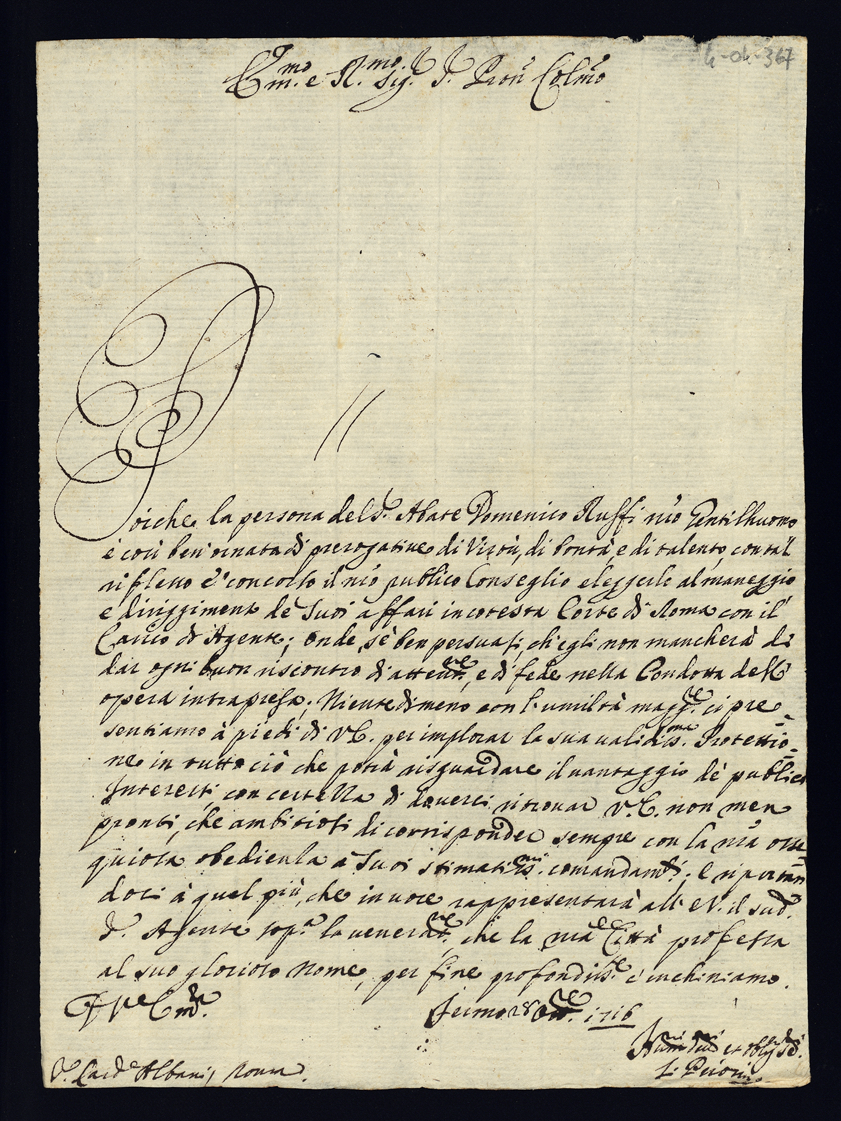 4-04-367
Em.mo e R.mo Sig. P. Pron Colmo
Poiche la persona del S. Abate Domenico Ruffi nro Gentilhuomo
è così ben'ornata di prerogative di Virtù, di bontà, e di talento, con tal
riflesso è concorso il nro publico Conseglio eleggerlo al maneggio
e diriggimento de Suoi affari in cotesta Corte di Roma con il
Carico di Agente; Onde, sè ben persuasi, ch'egli non mancherà di
dar ogni buon riscontro di attenne, e di fede nella Condotta dell'
opera intrapresa; Nientedimeno con l'umiltà magg.re ci pre-
sentiamo à piedi di V.E. per implorar la sua validis.ma Protettio-
ne in tutto ciò che potrà risguardare il vantaggio de publici
Interessi con certezza di doverci ritrovar V.E. non men
pronti, che ambitiosi di corrisponder sempre con la nra osse-
quiosa obedienza à Suoi stimatis.mi comandamti; e riportan
doci à quel più, che in voce rappresentarà all' E.V. il sud.
S. Agente sop.a la venerane, che la nra Città professa
al suo glorioso Nome, per fine profondis.te c'inchiniamo.
Fermo 28 1716
Hum.mi et Obbl.mi
Li Priori
S. Card. Albani, Roma.